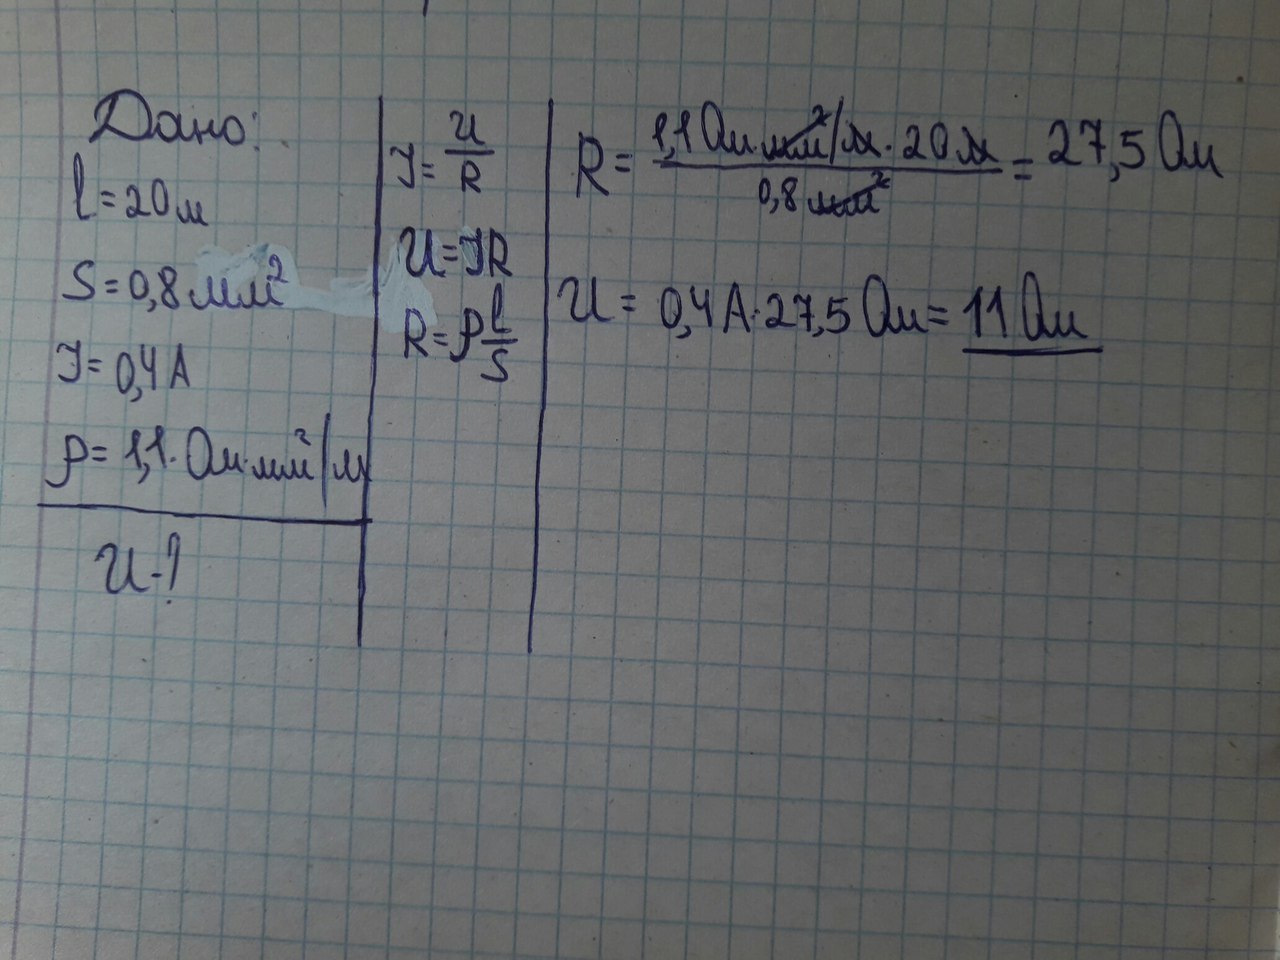 Дано:
l = 20 м
S = 0,8 мм²
I = 0,4 А
ρ = 1,1 · Ом·мм²/м
U - ?
I = U/R
U = IR
R = ρ l/S
R = 1,1 Ом·мм²/м · 20 м / 0,8 мм² = 27,5 Ом
U = 0,4 А · 27,5 Ом = 11 Ом